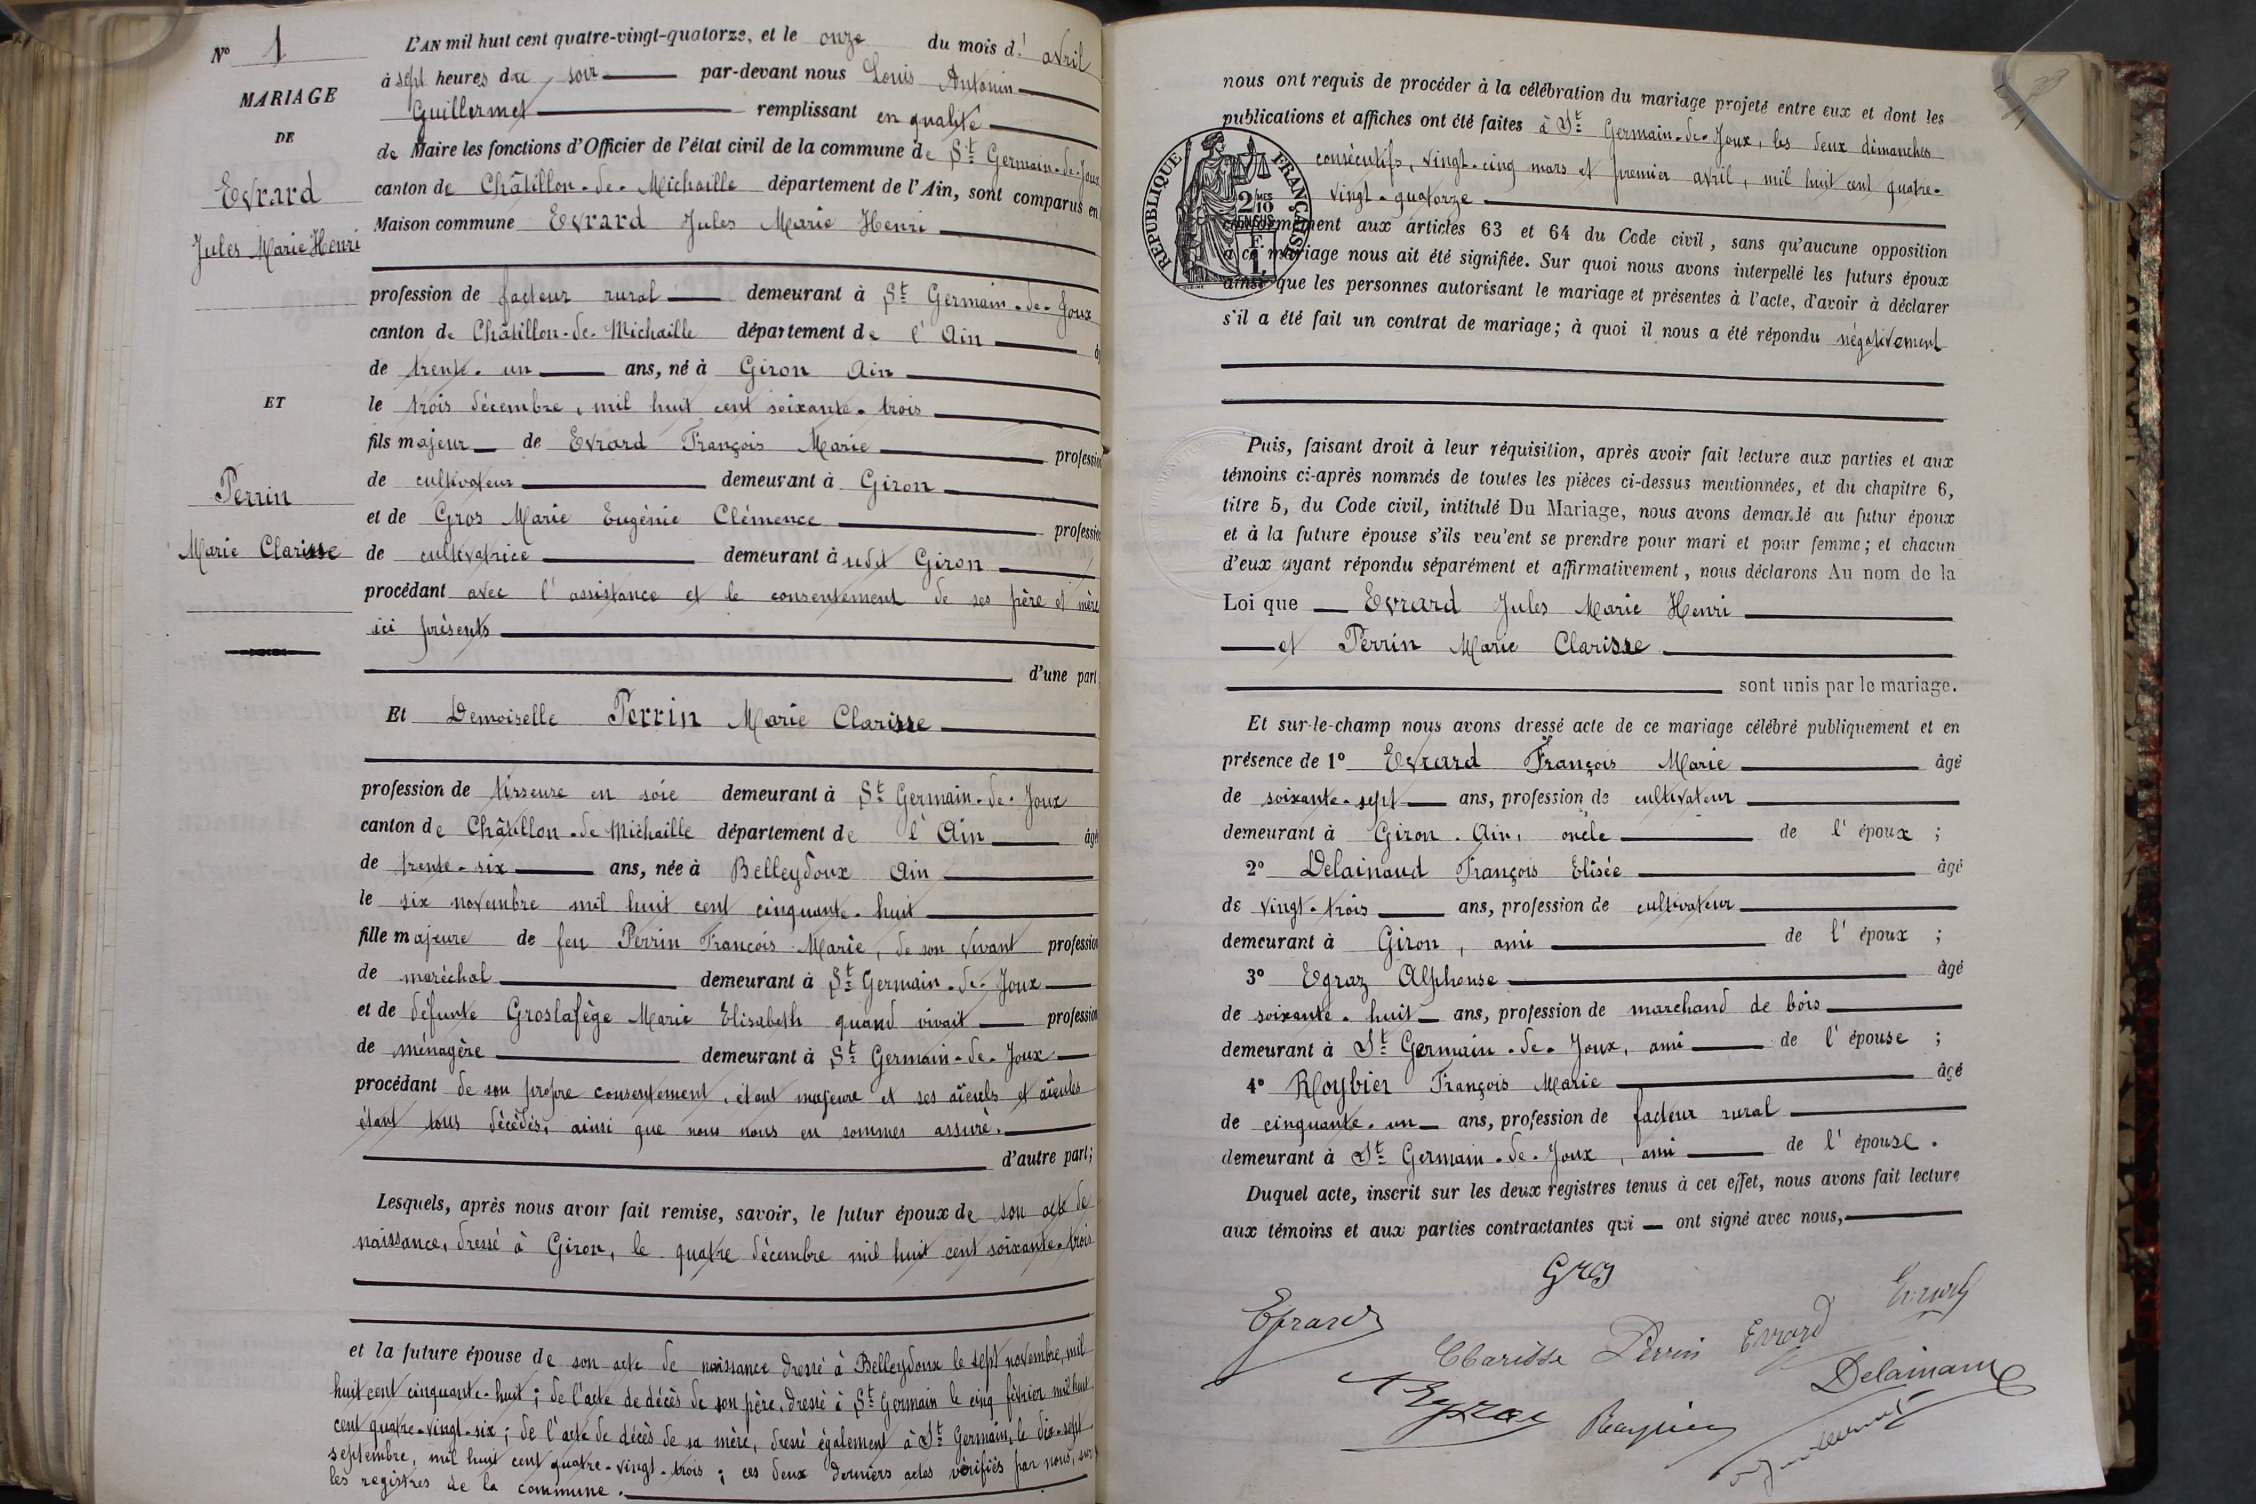 N° 1
MARIAGE
DE
Evrard
Jules Marie Henri
ET
Perrin
Marie Clarisse
L'AN mil huit cent quatre-vingt-quatorze, et le onze du mois d' avril
à sept heures du soir par-devant nous Louis Antonin
Guillermet remplissant en qualité
de Maire les fonctions d'Officier de l'état civil de la commune de St Germain-de-Joux
canton de Châtillon-de-Michaille département de l'Ain, sont comparus en
Maison commune Evrard Jules Marie Henri
profession de facteur rural demeurant à St Germain-de-Joux
canton de Châtillon-de-Michaille département de l'Ain
de trente-un ans, né à Giron Ain
le trois décembre, mil huit cent soixante-trois
fils majeur de Evrard François Marie profession
de cultivateur demeurant à Giron
et de Gros Marie Eugénie Clémence profession
de cultivatrice demeurant à udit Giron
procédant avec l'assistance et le consentement de ses père et mère
ici présents
d'une part
Et Demoiselle Perrin Marie Clarisse
profession de tisseuse en soie demeurant à St Germain-de-Joux
canton de Châtillon-de-Michaille département de l'Ain âgé
de trente-six ans, née à Belleydoux Ain
le six novembre mil huit cent cinquante-huit
fille majeure de feu Perrin François Marie, de son vivant profession
de maréchal demeurant à St Germain-de-Joux
et de défunte Groslafège Marie Elisabeth quand vivait profession
de ménagère demeurant à St Germain-de-Joux
procédant de son propre consentement, étant majeure et ses aïeuls et aïeules
étant tous décédés, ainsi que nous nous en sommes assuré.
d'autre part;
Lesquels, après nous avoir fait remise, savoir, le futur époux de son acte de
naissance, dressé à Giron, le quatre décembre mil huit cent soixante-trois
et la future épouse de son acte de naissance dressé à Belleydoux le sept novembre, mil
huit cent cinquante-huit; de l'acte de décès de son père, dressé à St Germain le cinq février mil huit
cent quatre-vingt-six; de l'acte de décès de sa mère, dressé également à St Germain, le dix-sept
septembre, mil huit cent quatre-vingt-trois; ces deux derniers actes vérifiés par nous, sur
les registres de la commune.
nous ont requis de procéder à la célébration du mariage projeté entre eux et dont les
publications et affiches ont été faites à St Germain-de-Joux, les deux dimanches
consécutifs, vingt-cinq mars et premier avril, mil huit cent quatre-
vingt-quatorze
RÉPUBLIQUE FRANÇAISE
2/10 MES
EN SUS
F
1
conformément aux articles 63 et 64 du Code civil, sans qu'aucune opposition
à ce mariage nous ait été signifiée. Sur quoi nous avons interpellé les futurs époux
ainsi que les personnes autorisant le mariage et présentes à l'acte, d'avoir à déclarer
s'il a été fait un contrat de mariage; à quoi il nous a été répondu négativement
Puis, faisant droit à leur réquisition, après avoir fait lecture aux parties et aux
témoins ci-après nommés de toutes les pièces ci-dessus mentionnées, et du chapitre 6,
titre 5, du Code civil, intitulé Du Mariage, nous avons demandé au futur époux
et à la future épouse s'ils veulent se prendre pour mari et pour femme; et chacun
d'eux ayant répondu séparément et affirmativement, nous déclarons Au nom de la
Loi que Evrard Jules Marie Henri
et Perrin Marie Clarisse
sont unis par le mariage.
Et sur-le-champ nous avons dressé acte de ce mariage célébré publiquement et en
présence de 1° Evrard François Marie âgé
de soixante-sept ans, profession de cultivateur
demeurant à Giron. Ain, oncle de l'époux ;
2° Delainaud François Elisée âgé
de vingt-trois ans, profession de cultivateur
demeurant à Giron, ami de l'époux ;
3° Egraz Alphonse âgé
de soixante-huit ans, profession de marchand de bois
demeurant à St Germain-de-Joux, ami de l'épouse ;
4° Roybier François Marie âgé
de cinquante-un ans, profession de facteur rural
demeurant à St Germain-de-Joux, ami de l'épouse.
Duquel acte, inscrit sur les deux registres tenus à cet effet, nous avons fait lecture
aux témoins et aux parties contractantes qui ont signé avec nous,
Gros
Evrard
Clarisse Perrin Evrard
Delainaud